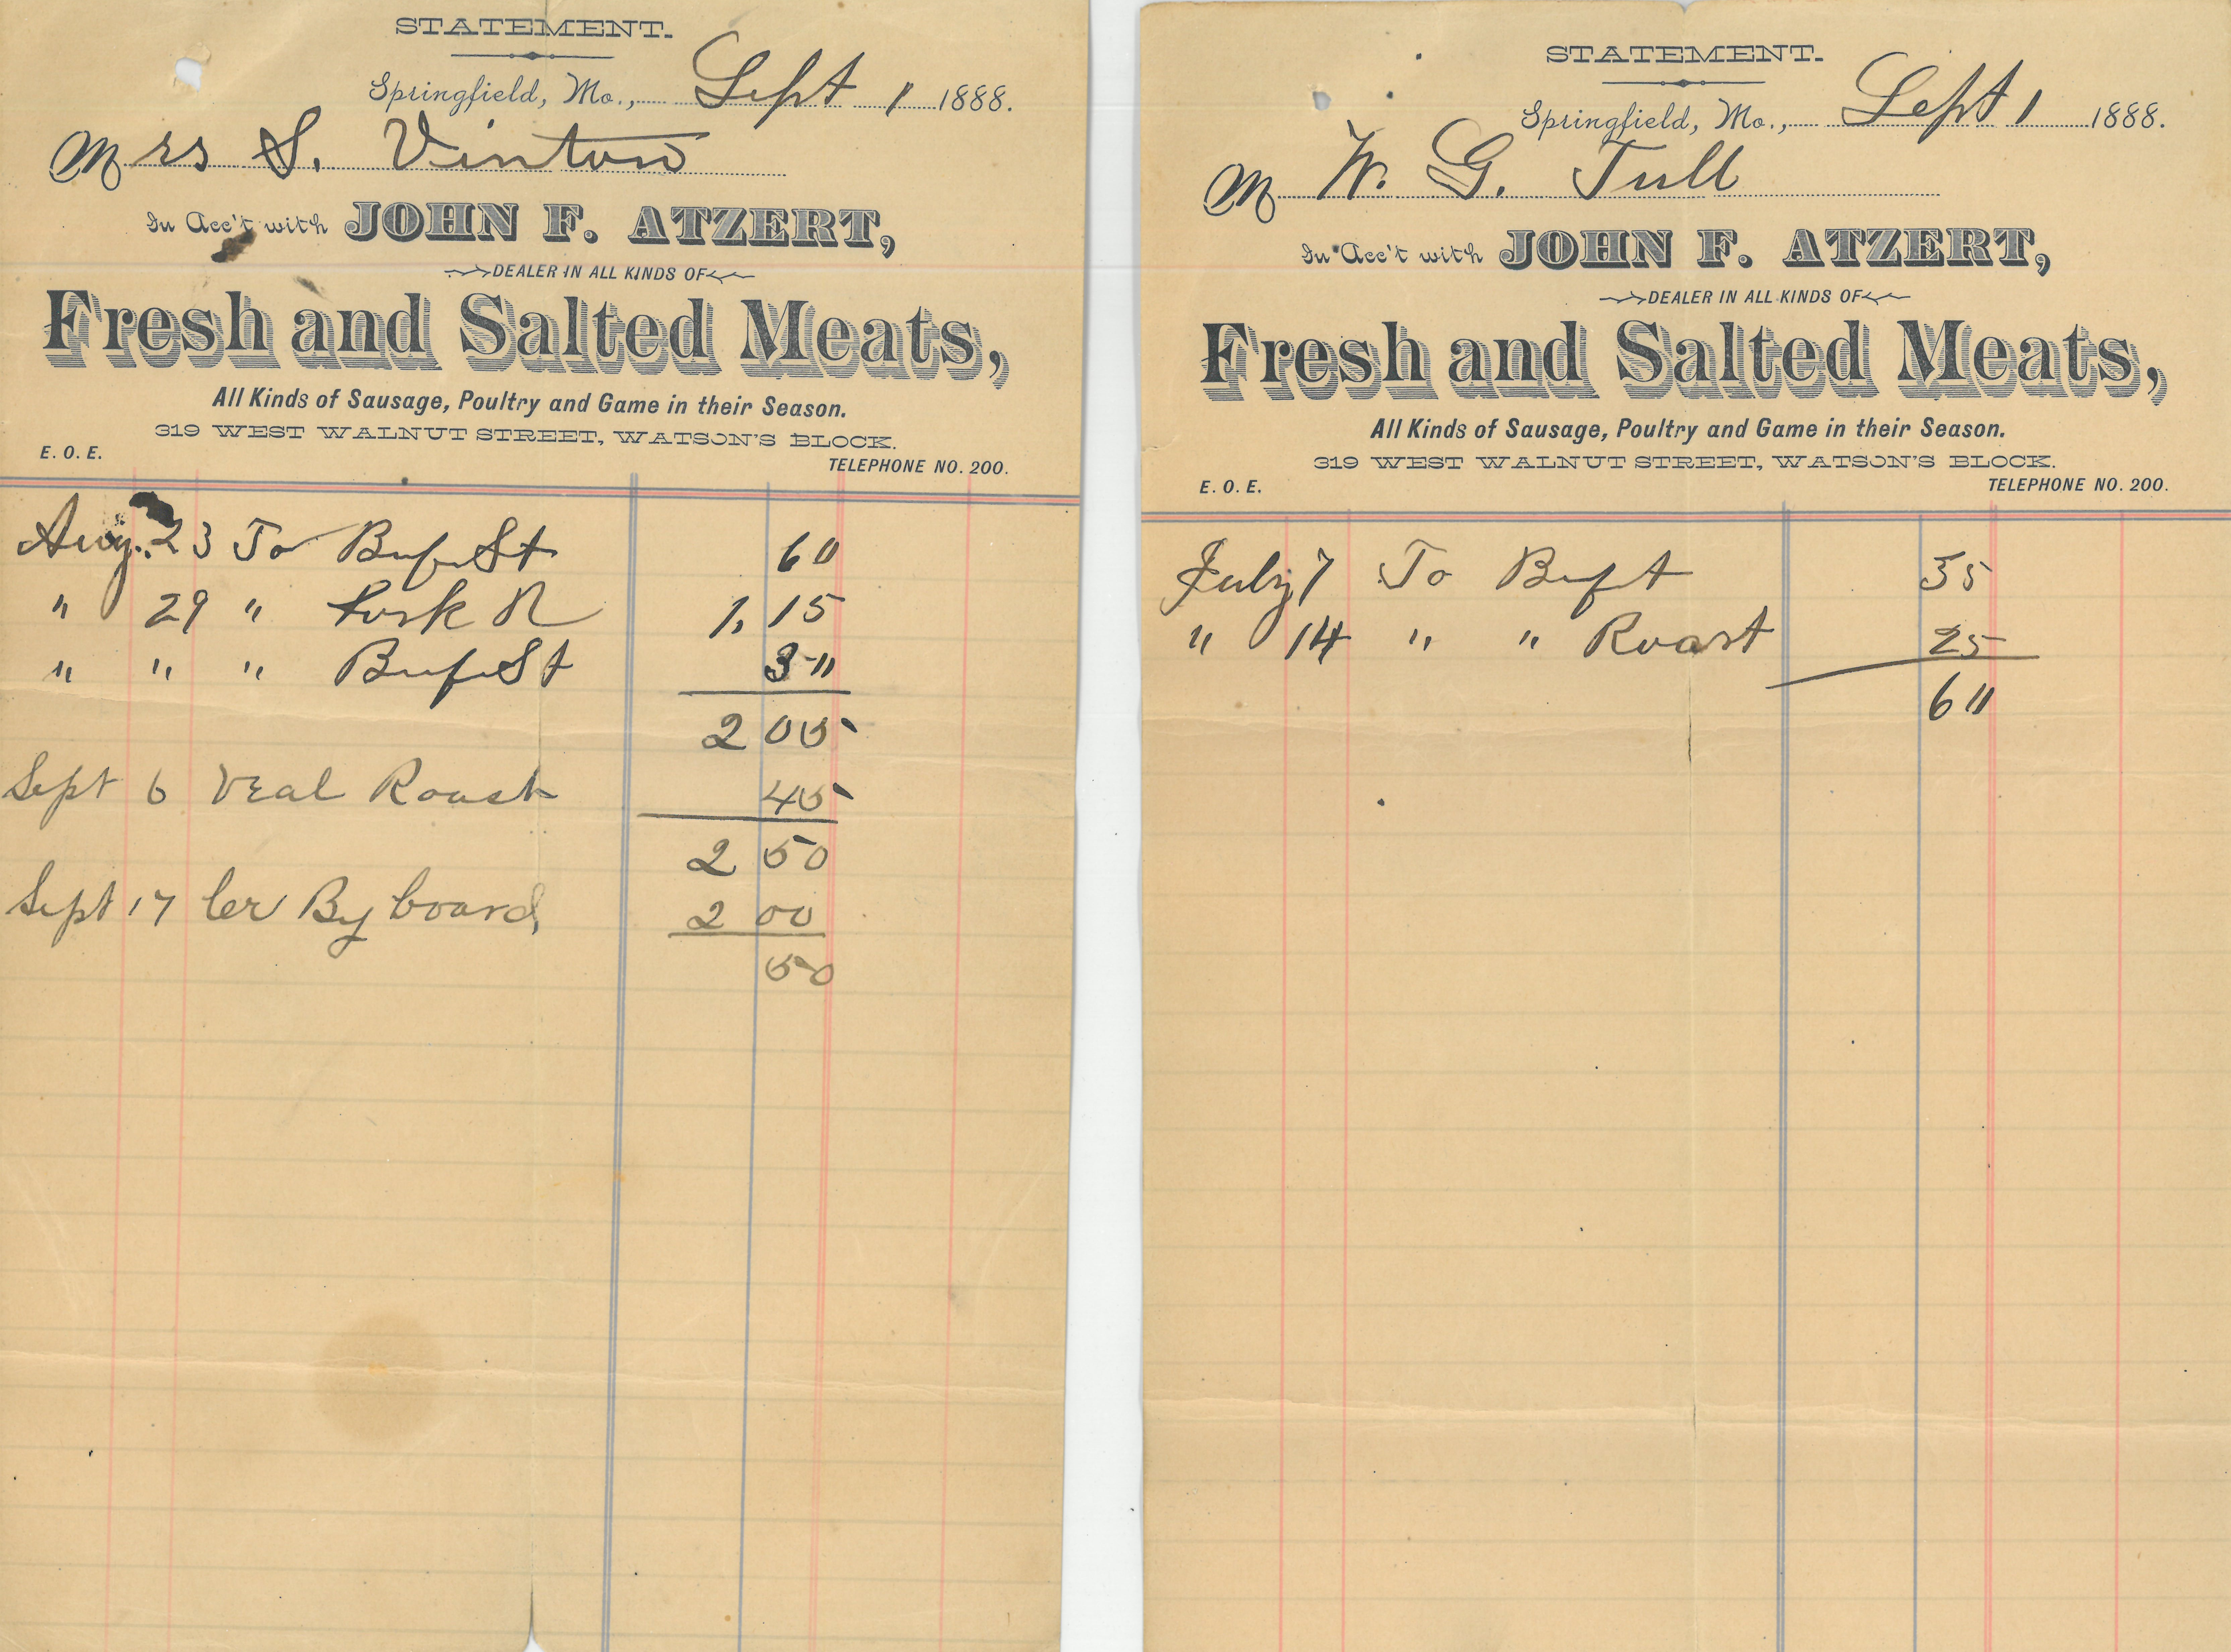 STATEMENT.
Springfield, Mo., Sept 1 1888.
Mrs S. Vinton
In Acc't with JOHN F. ATZERT,
DEALER IN ALL KINDS OF
Fresh and Salted Meats,
All Kinds of Sausage, Poultry and Game in their Season.
319 WEST WALNUT STREET, WATSON'S BLOCK.
E. O. E. TELEPHONE NO. 200.
Aug. 23 To Buf St 60
" 29 " Pork R 1,15
" " " Buf St 30
2 05
Sept 6 Veal Roast 45
2 50
Sept 17 Cr By board 2 00
50
STATEMENT.
Springfield, Mo., Sept 1 1888.
M W. G. Tull
In Acc't with JOHN F. ATZERT,
DEALER IN ALL KINDS OF
Fresh and Salted Meats,
All Kinds of Sausage, Poultry and Game in their Season.
319 WEST WALNUT STREET, WATSON'S BLOCK.
E. O. E. TELEPHONE NO. 200.
July 7 To Buft 35
" 14 " " Roast 25
60